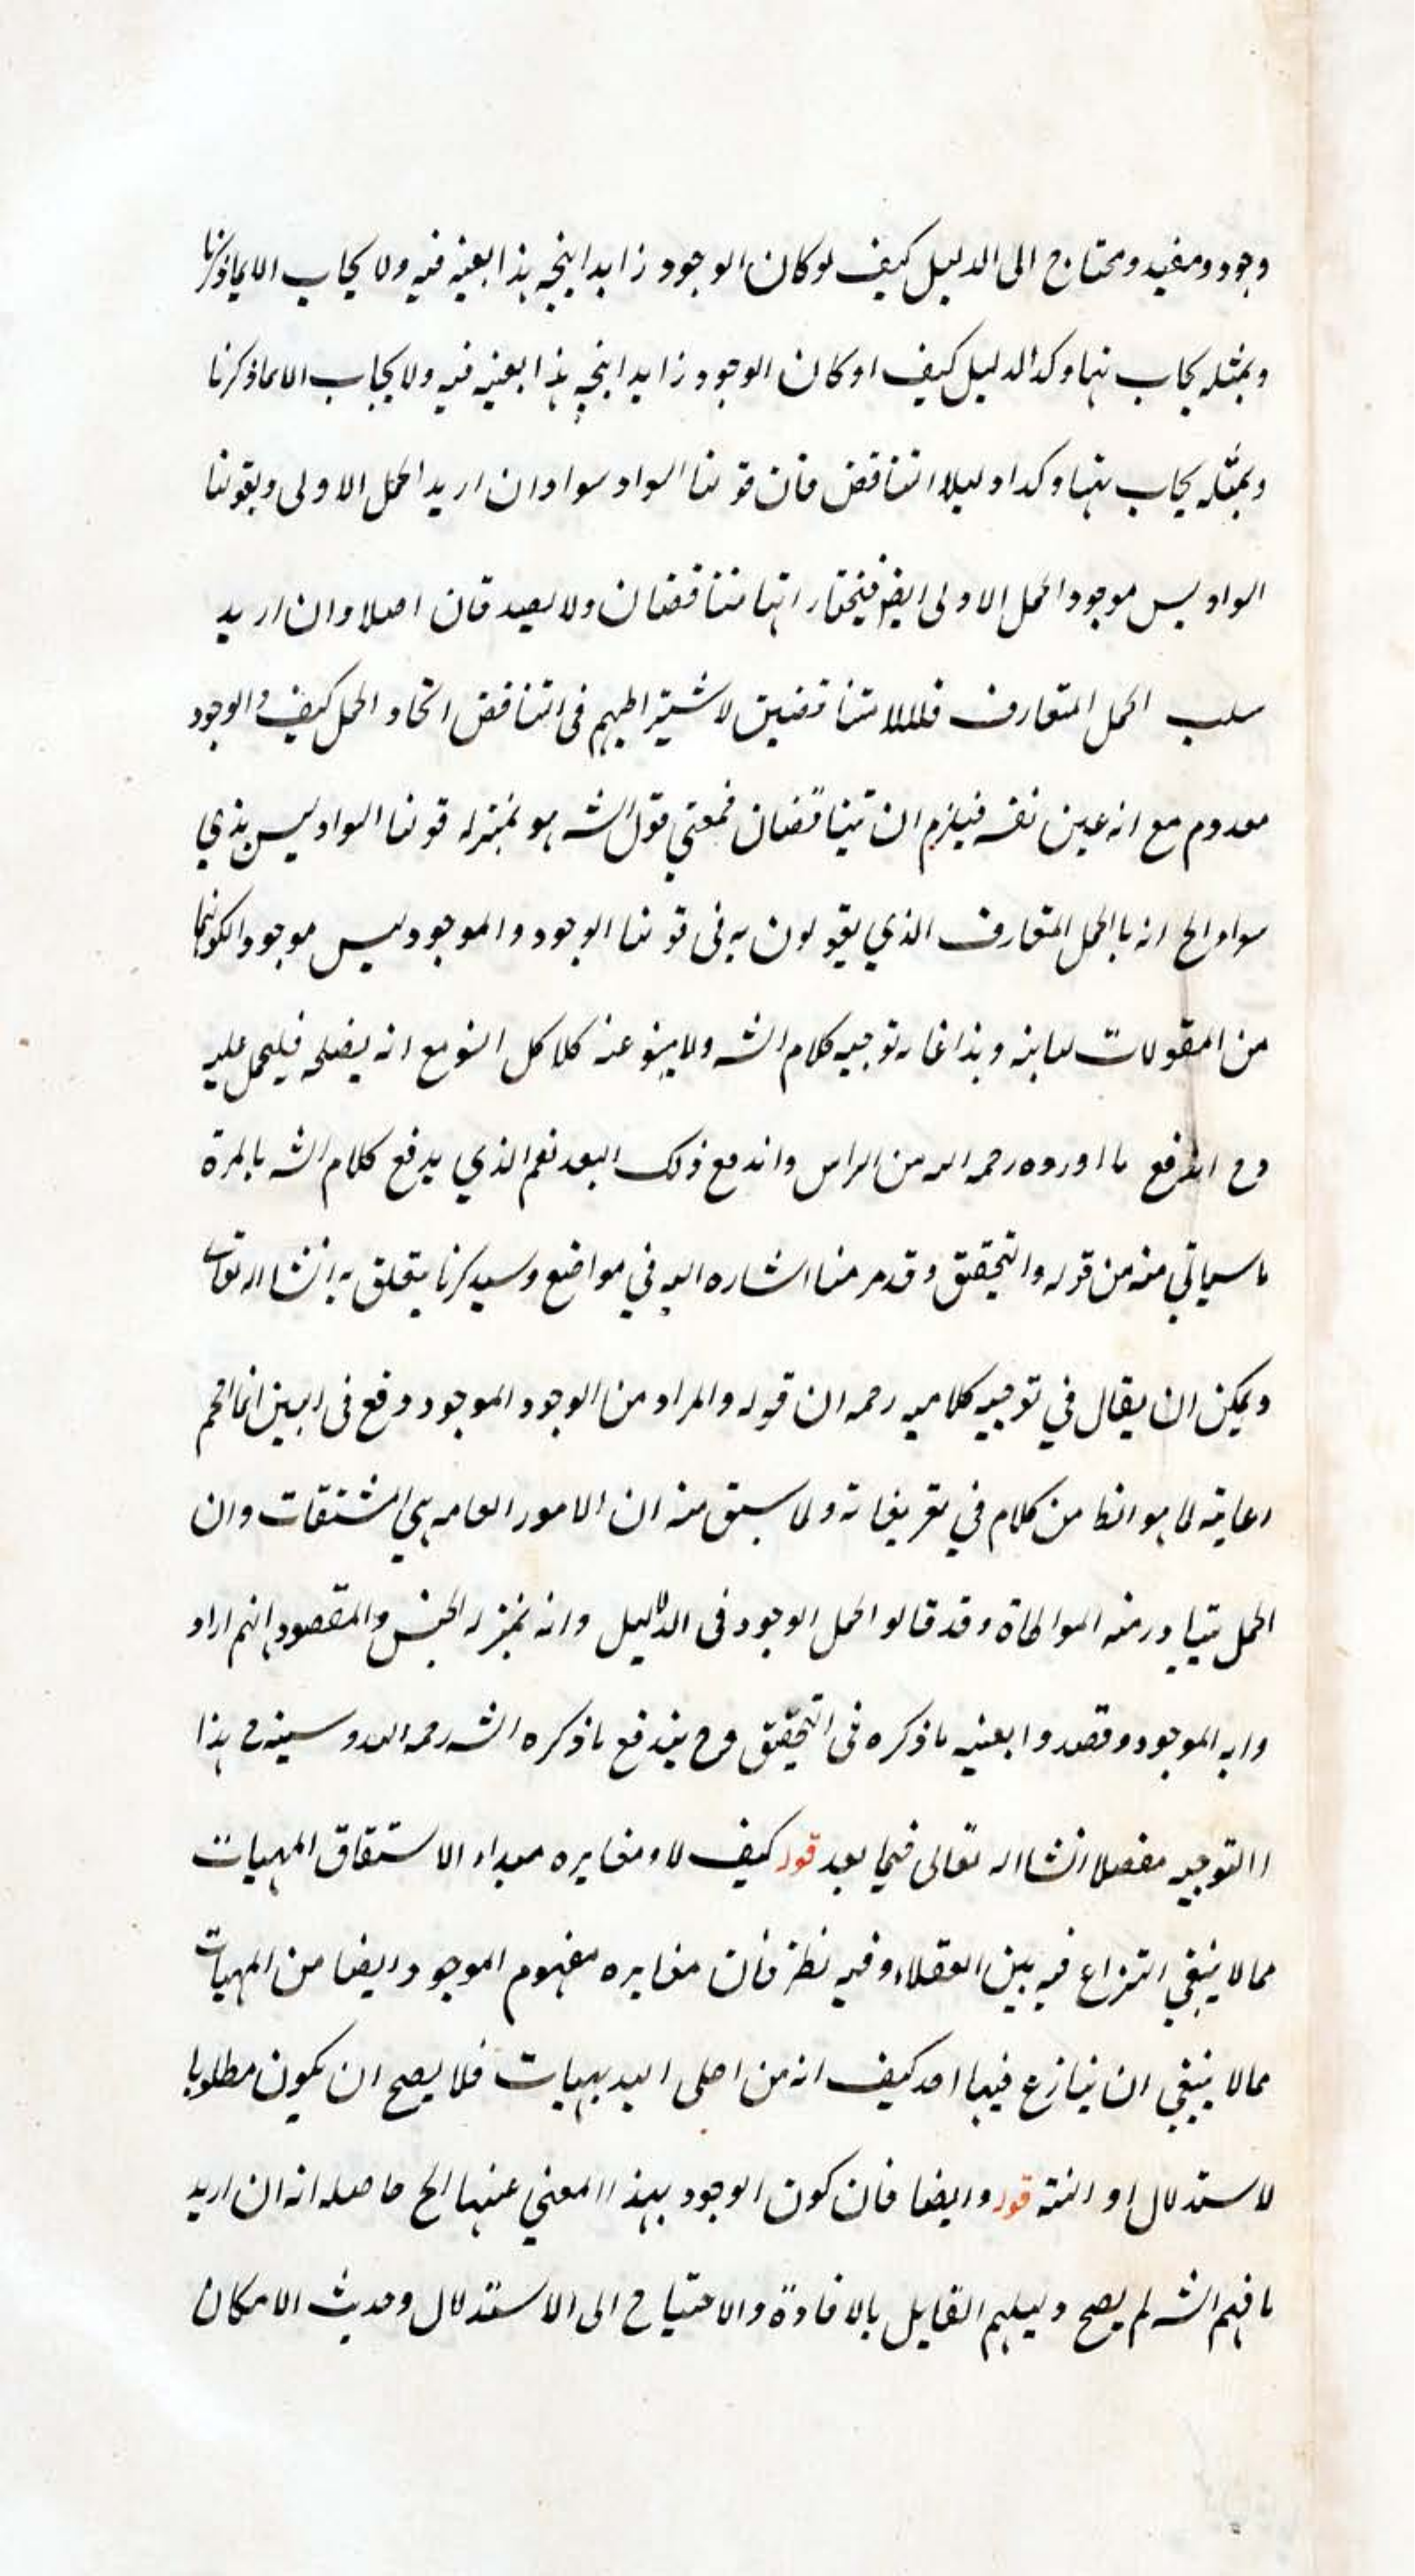 وجود ومفيد ومحتاج الى الدليل كيف لو كان الوجود زايدا ينجه هذا بعينه فيه ولا يجاب الا بما ذكرنا
وبمثله يجاب نهما وكذا الدليل كيف او كان الوجود زايدا ينجه هذا بعينه فيه ولا يجاب الا بما ذكرنا
وبمثله يجاب نهما وكدا دليلا التناقض فان قولنا السواد سواد ان اريد الحمل الاولى وبقولنا
السواد ليس موجود الحمل الاولى ايضا فيختار انهما متناقضان ولا يصدقان اصلا وان اريد
سلب الحمل المتعارف فلا متناقضين لاشتراطهم فى التناقض اتحاد الحمل كيف والوجود
معدوم مع انه عين نفسه فيلزم ان يتناقضان فمعنى قول الشه هو بمنزله قولنا السواد ليس بذي
سواد الخ انه بالحمل المتعارف الذي يقولون به فى قولنا الوجود والموجود ليس موجود الكونهما
من المقولات الثانيه وهذا غايه توجيه كلام الشه ولا ينبو عنه كلا كل النبو مع انه يصلح فليحمل عليه
وح اندفع ما اورده رحمه الله من الراس واندفع ذلك البعد نعم الذي يدفع كلام الشه بالمرة
ما سياتي منه من قوله والتحقيق وقد مر منا اشاره اليه في مواضع وسيد كرنا يتعلق به انشا الله تعالى
ويمكن ان يقال في توجيه كلاميه رحمه ان قوله والمراد من الوجود الموجود وقع فى البين انما اقحم
رعايته لما هو الظا من كلام في تعريفاته ولما سبق منه ان الامور العامه هي المشتقات وان
الحمل يتبادر منه المواطاة وقد قالوا الحمل الوجود فى الدلايل وانه بمنزله الجنس والمقصود انهم اراد
وا به الموجود وقصدوا بعينه ما ذكره فى التحقيق وح يندفع ما ذكره الشه رحمه الله وسينه ح هذا
االتوجيه مفصلا انشا الله تعالى فيما بعد قوله كيف لا ومغايره مبداء الاستقاق المهيات
مما لا ينبغي النزاع فيه بين العقلاء وفيه نظر فان مغايره مفهوم الموجود ايضا من المهيات
مما لا ينبغي ان ينازع فيها احد كيف انه من اجلى البديهيات فلا يصح ان يكون مطلوبا
لاستدلال او ائمته قوله وايضا فان كون الوجود بهذا المعني عنها الخ حاصله انه ان اريد
ما فهم الشه لم يصح دليلهم القايل بالافادة والاحتياج الى الاستدلال وحديث الامكان